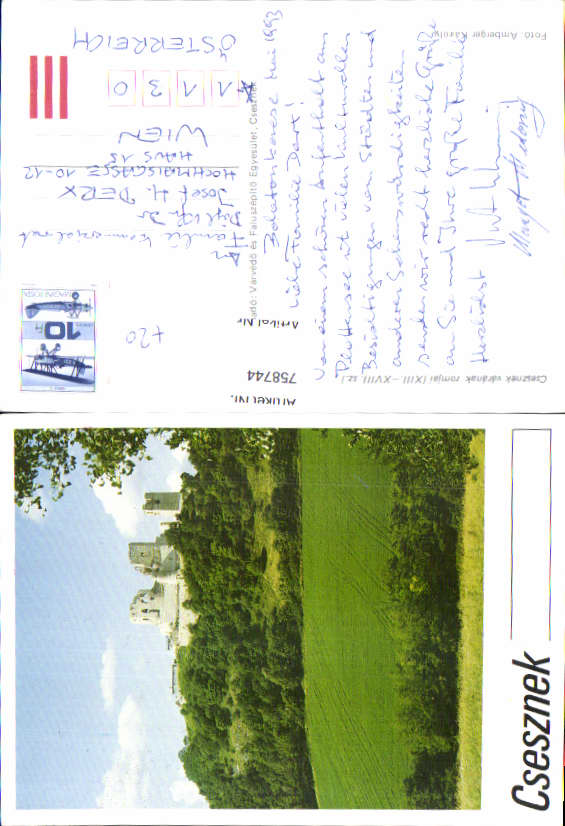 Csesznek várának romjai (XIII.–XVIII. sz.)
Fotó: Amberger Károly
Kiadó: Várvédő és Faluszépítő Egyesület, Csesznek
Artikel Nr.
758744
Artikel Nr.
MAGYAR POSTA
10
+20
Balatonkenese Mai 1993
Liebe Familie Derx!
Von einem schönen Aufenthalt am
Plattensee mit vielen kulturellen
Besichtigungen von Städten und
anderen Sehenswürdigkeiten
senden wir recht herzliche Grüße
an Sie und Ihre große Familie
Herzlichst
An
Familie Kommerzialrat
Josef H. DERX
HOCHMAISGASSE 10-12
HAUS 15
WIEN
1130
ÖSTERREICH
Csesznek